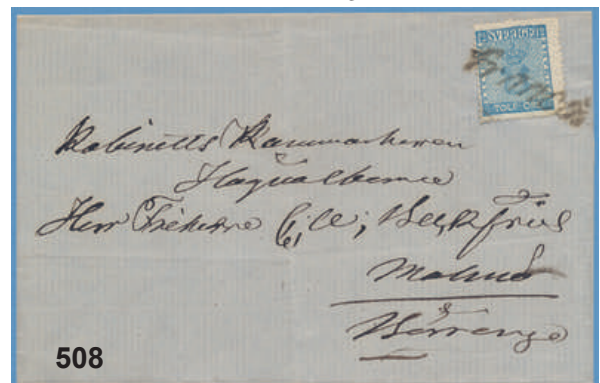 SVERIGE
TOLF ÖRE
Kabinetts Kammarherren
Herr Friherre C, Beckfriis
Malmö
&
Börringe
508